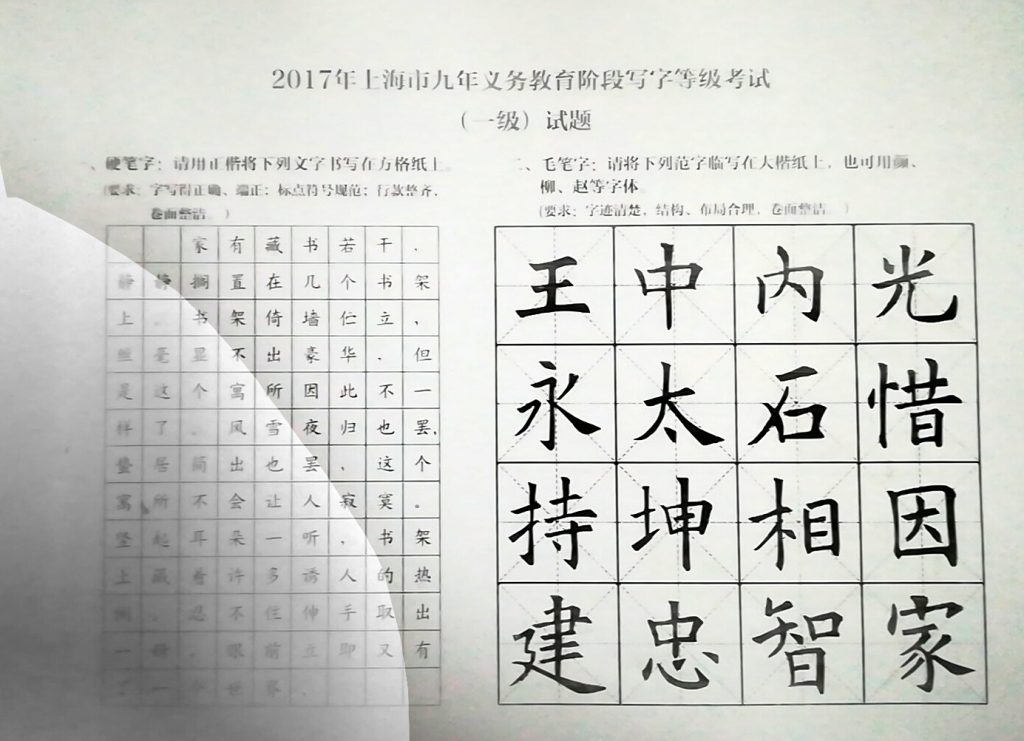 2017年上海市九年义务教育阶段写字等级考试
（一级）试题
、硬笔字：请用正楷将下列文字书写在方格纸上
(要求：字写得正确、端正；标点符号规范；行款整齐，
卷面整洁。)
家有藏书若干，
静静搁置在几个书架
上。书架倚墙伫立，
丝毫显不出豪华，但
是这个寓所因此不一
样了。风雪夜归也罢，
蛰居简出也罢，这个
寓所不会让人寂寞。
竖起耳朵一听，书架
上藏着许多诱人的热
闹。忍不住伸手取出
一册，眼前立即又有
了一个世界。
二、毛笔字：请将下列范字临写在大楷纸上，也可用颜、
柳、赵等字体
(要求：字迹清楚，结构、布局合理，卷面整洁。)
王中内光
永太石惜
持坤相因
建忠智家